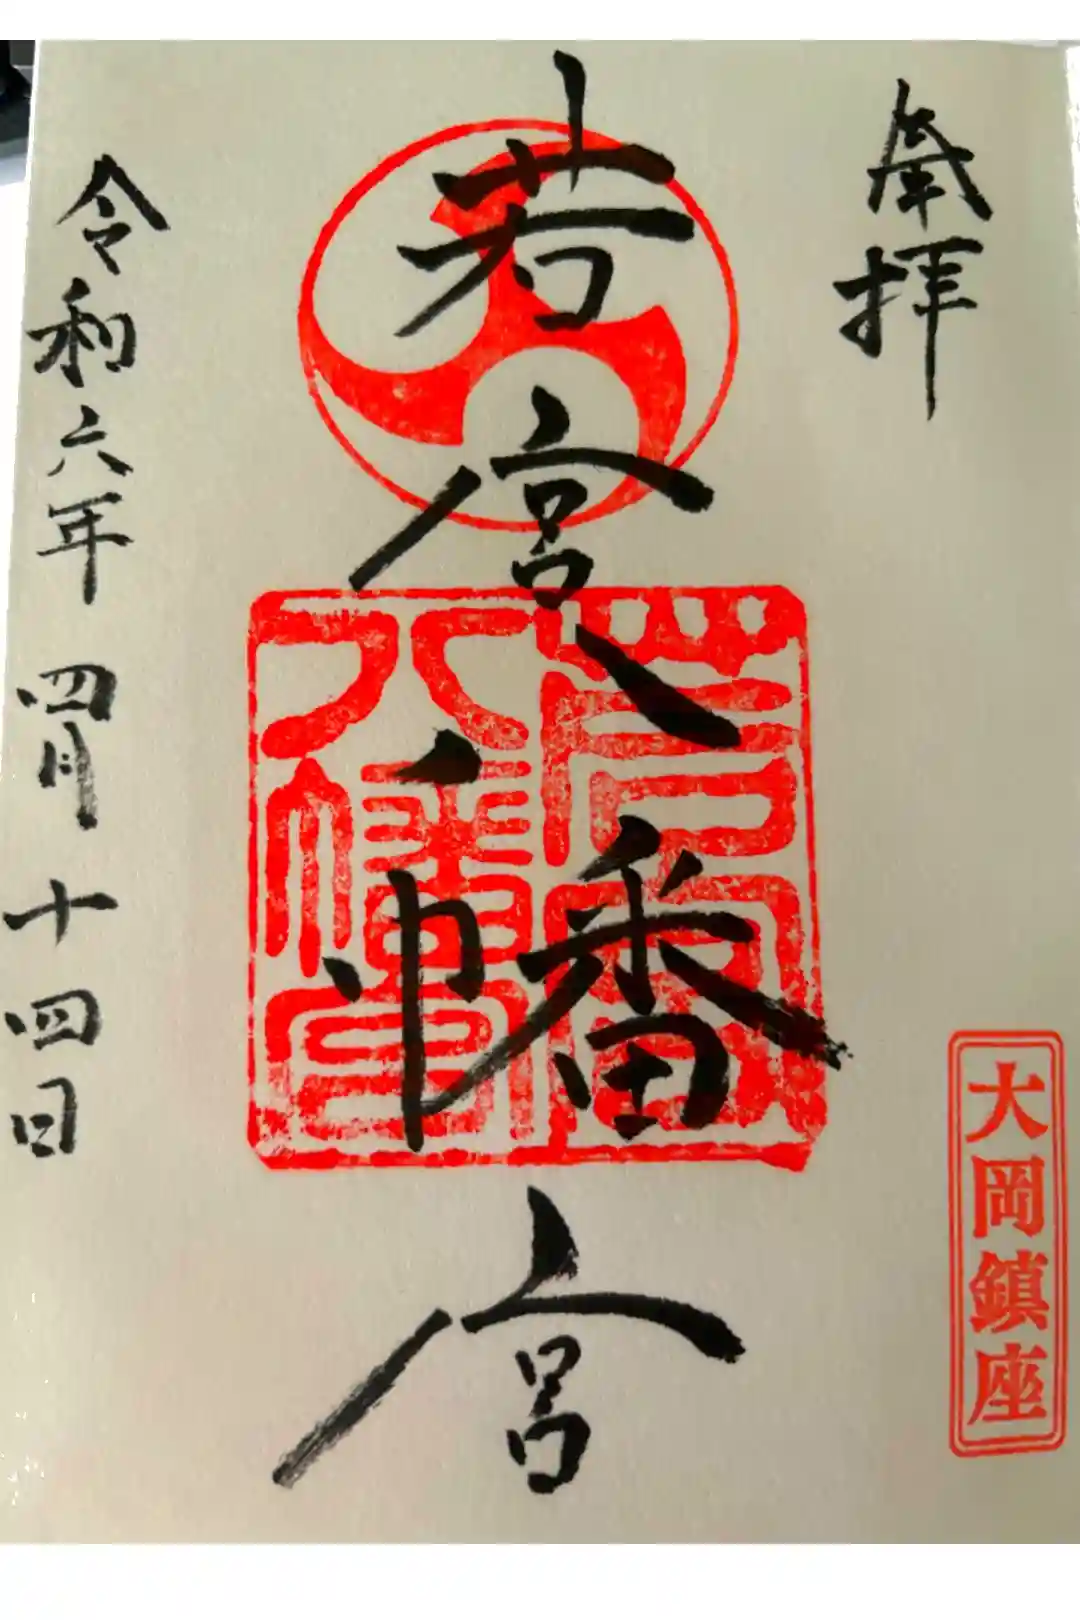 奉拝
大岡鎮座
若宮八幡宮
若宮
八幡宮
令和六年四月十四日